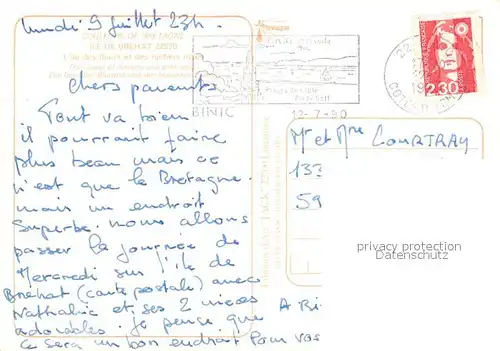 lundi 9 juillet 23h.
COULEURS DE BRETAGNE
ILE DE BREHAT 22870
L'île des fleurs et des rochers roses
Chers parents
Tout va bien
il pourrait faire
plus beau mais ce
n'est que la Bretagne.
mais un endroit
Superbe. nous allons
passer la journée de
Mercredi sur l'île de
Brehat (carte postale) avec
Nathalie et ses 2 nieces
adorables. je pense que
ce sera un bon endroit Pour vos
A Bi
BINIC
12-7-90
22
19
2,30
Mr et Mme COURTRAY
133
59
privacy protection
Datenschutz